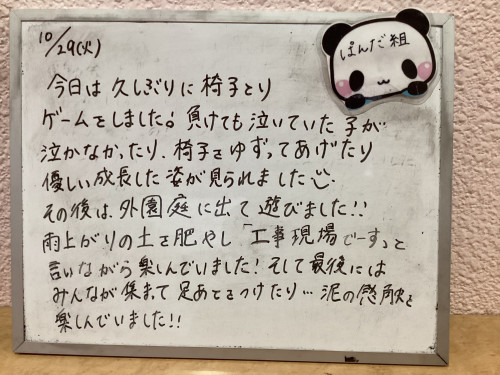 10/29(火)
ぱんだ組
今日は久しぶりに椅子とり
ゲームをしました。負けても泣いていた子が
泣かなかったり、椅子をゆずってあげたり
優しい成長した姿が見られました
その後は、外園庭に出て遊びました!!
雨上がりの土を肥やし「工事現場でーす」と
言いながら楽しんでいました!そして最後には
みんなが集まって足あとをつけたり…泥の感触を
楽しんでいました!!